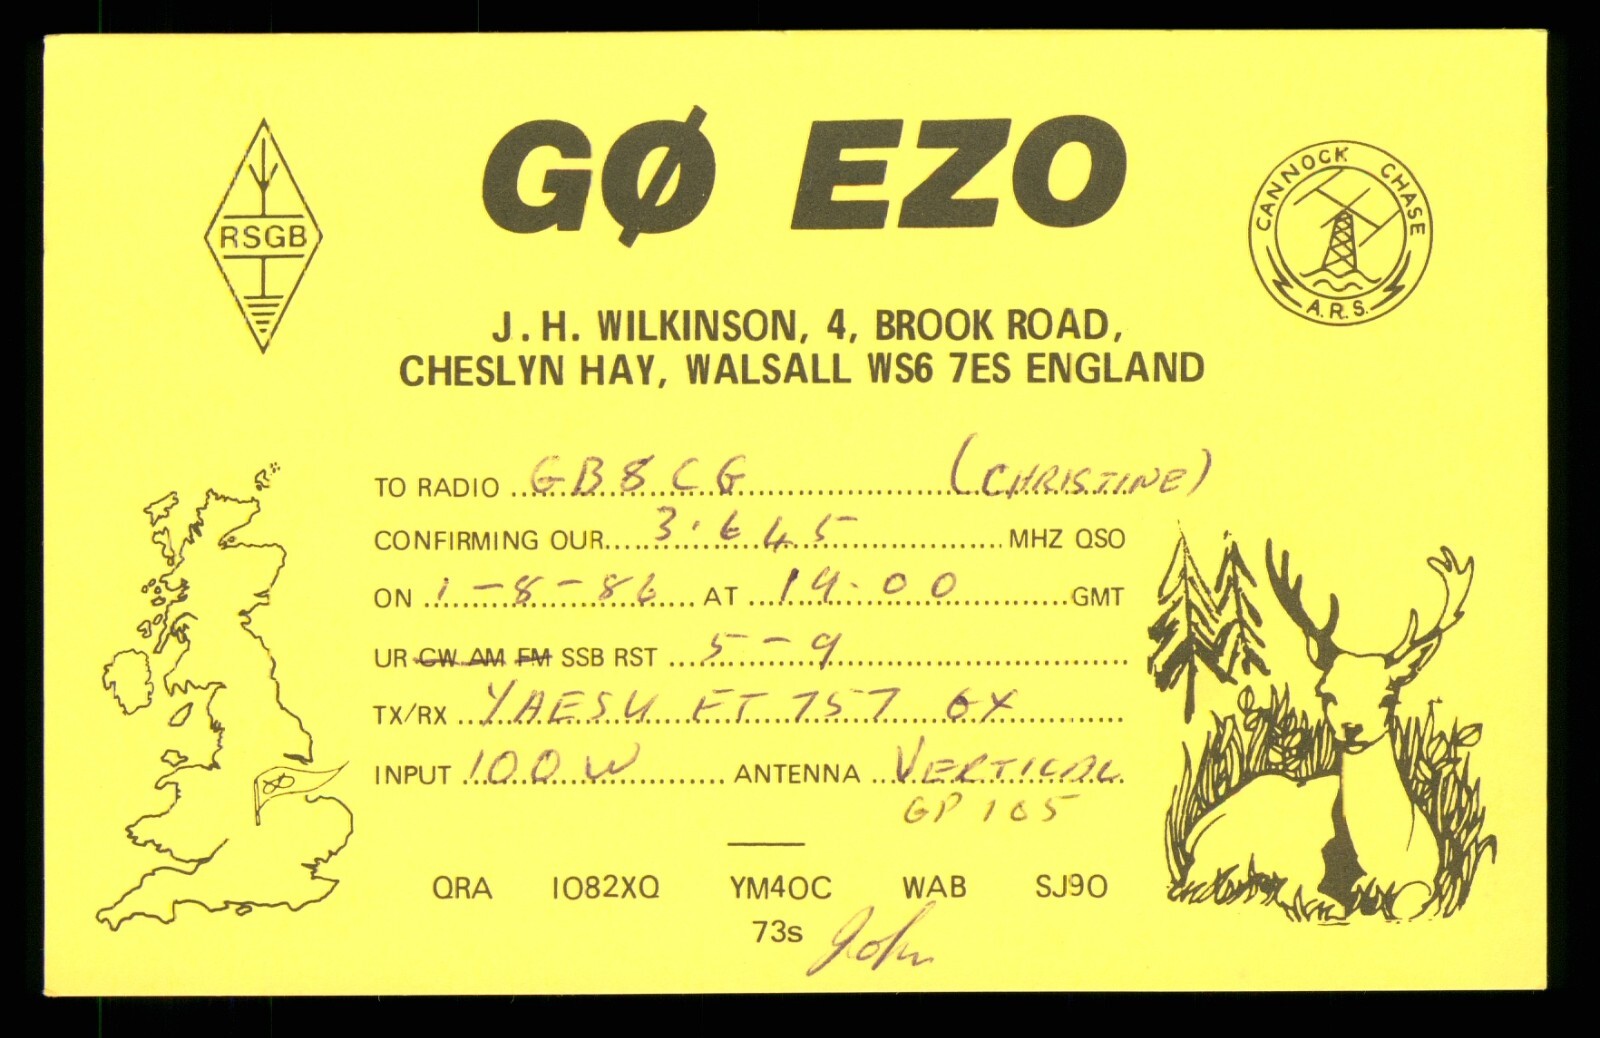 GØ EZO
RSGB
CANNOCK CHASE
A.R.S.
J. H. WILKINSON, 4, BROOK ROAD,
CHESLYN HAY, WALSALL WS6 7ES ENGLAND
TO RADIO GB8CG (CHRISTINE)
CONFIRMING OUR 3.645 MHZ QSO
ON 1-8-86 AT 19.00 GMT
UR CW AM FM SSB RST 5-9
TX/RX YAESU FT 757 GX
INPUT 100W ANTENNA VERTICAL
GP 105
QRA IO82XQ YM40C WAB SJ90
73s John